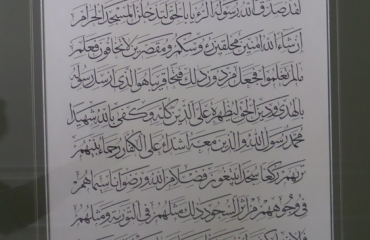 لقد صدق الله رسوله الرءيا بالحق لتدخلن المسجد الحرام
إن شاء الله آمنين محلقين رءوسكم ومقصرين لا تخافون فعلم
ما لم تعلموا فجعل من دون ذلك فتحا قريبا هو الذي أرسل رسوله
بالهدى ودين الحق ليظهره على الدين كله وكفى بالله شهيدا
محمد رسول الله والذين معه أشداء على الكفار رحماء بينهم
تريهم ركعا سجدا يبتغون فضلا من الله ورضوانا سيماهم
في وجوههم من أثر السجود ذلك مثلهم في التورية ومثلهم